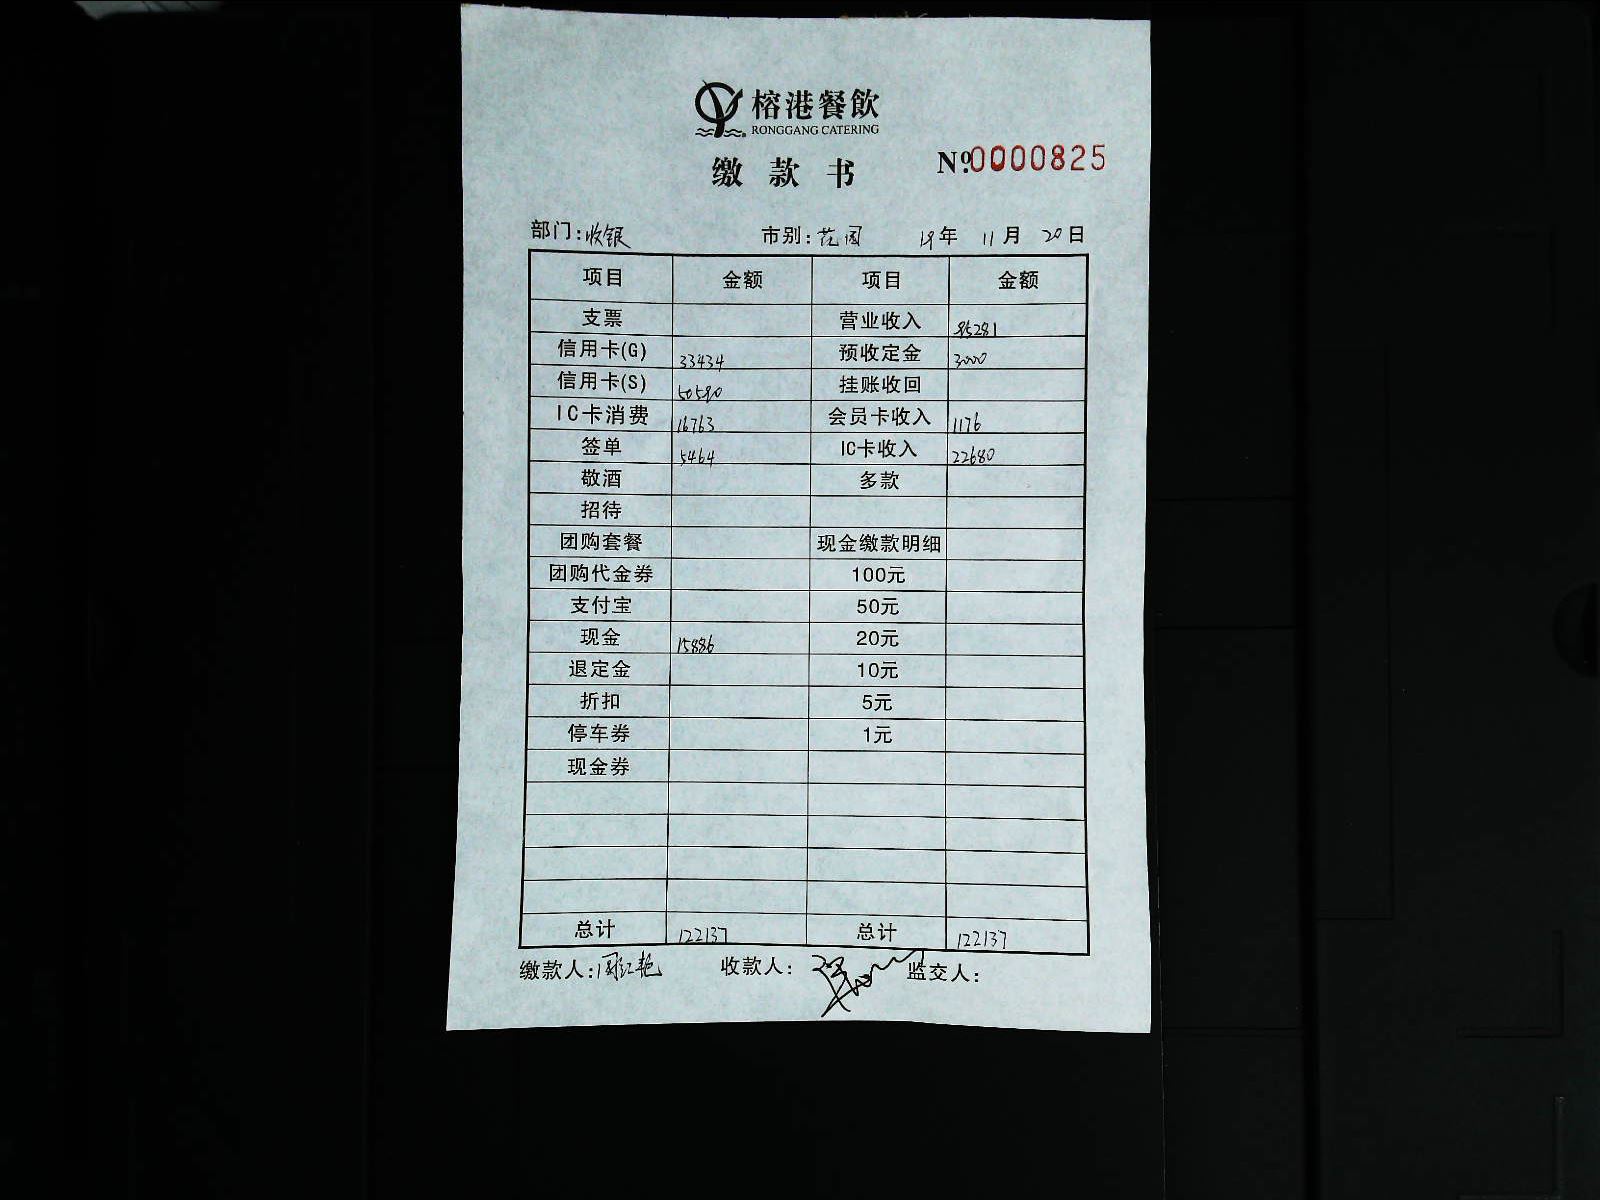 榕港餐飲
RONGGANG CATERING
缴款书 №0000825
部门:收银 市别:花园 19年 11月 20日
项目 金额 项目 金额
支票 营业收入 95281
信用卡(G) 33434 预收定金 3000
信用卡(S) 50590 挂账收回
IC卡消费 16763 会员卡收入 1176
签单 5464 IC卡收入 22680
敬酒 多款
招待
团购套餐 现金缴款明细
团购代金券 100元
支付宝 50元
现金 15886 20元
退定金 10元
折扣 5元
停车券 1元
现金券
总计 122137 总计 122137
缴款人:周红艳 收款人: 监交人: